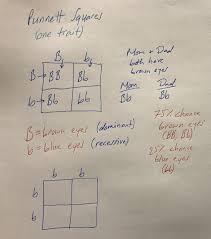 Punnett Squares
(one trait)
B b
B BB Bb
b Bb bb
Mom & Dad
both have
brown eyes
Mom Dad
Bb Bb
75% chance
brown eyes
(BB, Bb)
25% chance
blue eyes
(bb)
B = brown eyes (dominant)
b = blue eyes (recessive)
b b
b
b